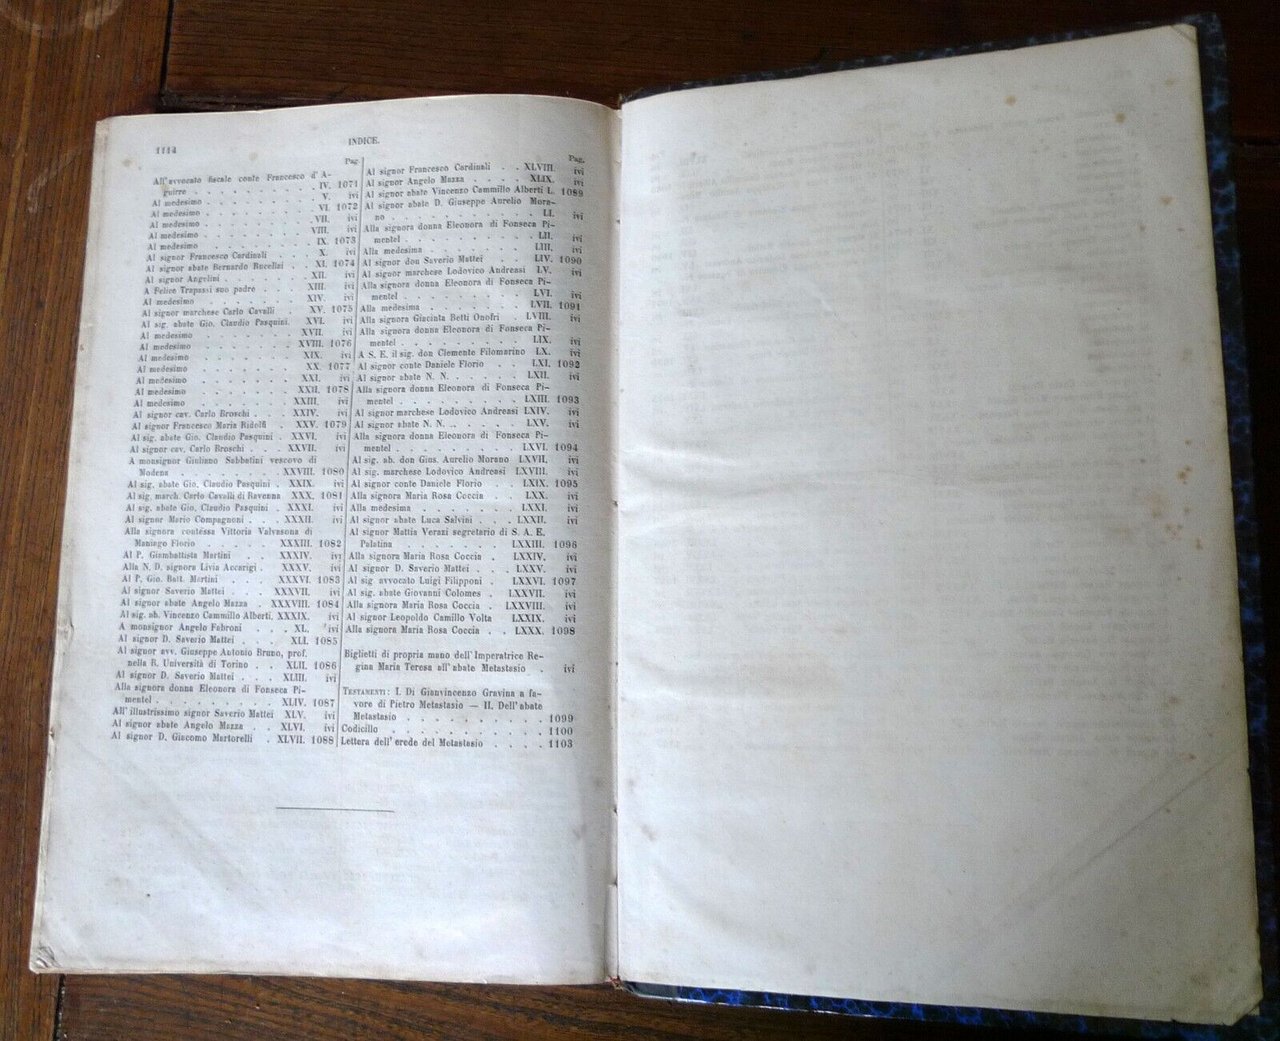 1114
INDICE.
Pag.
All' avvocato fiscale conte Francesco d' A-
guirre . . . . . . . . IV. 1071
Al medesimo . . . . . . . V. ivi
Al medesimo . . . . . . . VI. 1072
Al medesimo . . . . . . . VII. ivi
Al medesimo . . . . . . . VIII. ivi
Al medesimo . . . . . . . IX. 1073
Al signor Francesco Cardinali . . X. ivi
Al signor abate Bernardo Bucellai . . XI. 1074
Al signor Angelini . . . . . . XII. ivi
A Felice Trapassi suo padre . . . XIII. ivi
Al medesimo . . . . . . . XIV. ivi
Al signor marchese Carlo Cavalli . . XV. 1075
Al sig. abate Gio. Claudio Pasquini. XVI. ivi
Al medesimo . . . . . . . XVII. ivi
Al medesimo . . . . . . . XVIII. 1076
Al medesimo . . . . . . . XIX. ivi
Al medesimo . . . . . . . XX. 1077
Al medesimo . . . . . . . XXI. ivi
Al medesimo . . . . . . . XXII. 1078
Al medesimo . . . . . . . XXIII. ivi
Al signor cav. Carlo Broschi . . . XXIV. ivi
Al signor Francesco Maria Ridolfi . XXV. 1079
Al sig. abate Gio. Claudio Pasquini . XXVI. ivi
Al signor cav. Carlo Broschi . . . XXVII. ivi
A monsignor Giuliano Sabbatini vescovo di
Modena . . . . . . . XXVIII. 1080
Al sig. abate Gio. Claudio Pasquini . XXIX. ivi
Al sig. march. Carlo Cavalli di Ravenna XXX. 1081
Al sig. abate Gio. Claudio Pasquini . XXXI. ivi
Al signor Mario Compagnoni . . . XXXII. ivi
Alla signora contessa Vittoria Valvasona di
Maniago Florio . . . . . XXXIII. 1082
Al P. Giambattista Martini . . . XXXIV. ivi
Alla N. D. signora Livia Accarigi . XXXV. ivi
Al P. Gio. Batt. Martini . . . XXXVI. 1083
Al signor Saverio Mattei . . . XXXVII. ivi
Al signor abate Angelo Mazza . XXXVIII. 1084
Al sig. ab. Vincenzo Cammillo Alberti. XXXIX. ivi
A monsignor Angelo Fabroni . . . XL. ivi
Al signor D. Saverio Mattei . . . XLI. 1085
Al signor avv. Giuseppe Antonio Bruno, prof.
nella R. Università di Torino . . XLII. 1086
Al signor D. Saverio Mattei . . . XLIII. ivi
Alla signora donna Eleonora di Fonseca Pi-
mentel . . . . . . . . XLIV. 1087
All' illustrissimo signor Saverio Mattei XLV. ivi
Al signor abate Angelo Mazza . . XLVI. ivi
Al signor D. Giacomo Martorelli . XLVII. 1088
Pag.
Al signor Francesco Cardinali . . XLVIII. ivi
Al signor Angelo Mazza . . . . XLIX. ivi
Al signor abate Vincenzo Cammillo Alberti L. 1089
Al signor abate D. Giuseppe Aurelio Mora-
no . . . . . . . . . LI. ivi
Alla signora donna Eleonora di Fonseca Pi-
mentel . . . . . . . . LII. ivi
Alla medesima . . . . . . . LIII. ivi
Al signor don Saverio Mattei . . LIV. 1090
Al signor marchese Lodovico Andreasi . LV. ivi
Alla signora donna Eleonora di Fonseca Pi-
mentel . . . . . . . . LVI. ivi
Alla medesima . . . . . . . LVII. 1091
Alla signora Giacinta Betti Onofri . LVIII. ivi
Alla signora donna Eleonora di Fonseca Pi-
mentel . . . . . . . . LIX. ivi
A S. E. il sig. don Clemente Filomarino LX. ivi
Al signor conte Daniele Florio . . LXI. 1092
Al signor abate N. N. . . . . . LXII. ivi
Alla signora donna Eleonora di Fonseca Pi-
mentel . . . . . . . . LXIII. 1093
Al signor marchese Lodovico Andreasi LXIV. ivi
Al signor abate N. N. . . . . . LXV. ivi
Alla signora donna Eleonora di Fonseca Pi-
mentel . . . . . . . . LXVI. 1094
Al sig. ab. don Gius. Aurelio Morano LXVII. ivi
Al sig. marchese Lodovico Andreasi LXVIII. ivi
Al signor conte Daniele Florio . . LXIX. 1095
Alla signora Maria Rosa Coccia . . LXX. ivi
Alla medesima . . . . . . . LXXI. ivi
Al signor abate Luca Salvini . . . LXXII. ivi
Al signor Mattia Verazi segretario di S. A. E.
Palatina . . . . . . . LXXIII. 1096
Alla signora Maria Rosa Coccia . LXXIV. ivi
Al signor D. Saverio Mattei . . . LXXV. ivi
Al sig. avvocato Luigi Filipponi . LXXVI. 1097
Al sig. abate Giovanni Colomes . LXXVII. ivi
Alla signora Maria Rosa Coccia . LXXVIII. ivi
Al signor Leopoldo Camillo Volta . LXXIX. ivi
Alla signora Maria Rosa Coccia . . LXXX. 1098
Biglietti di propria mano dell' Imperatrice Re-
gina Maria Teresa all' abate Metastasio . ivi
TESTAMENTI: I. Di Gianvincenzo Gravina a fa-
vore di Pietro Metastasio — II. Dell' abate
Metastasio . . . . . . . . . 1099
Codicillo . . . . . . . . . . 1100
Lettera dell' erede del Metastasio . . . . 1103